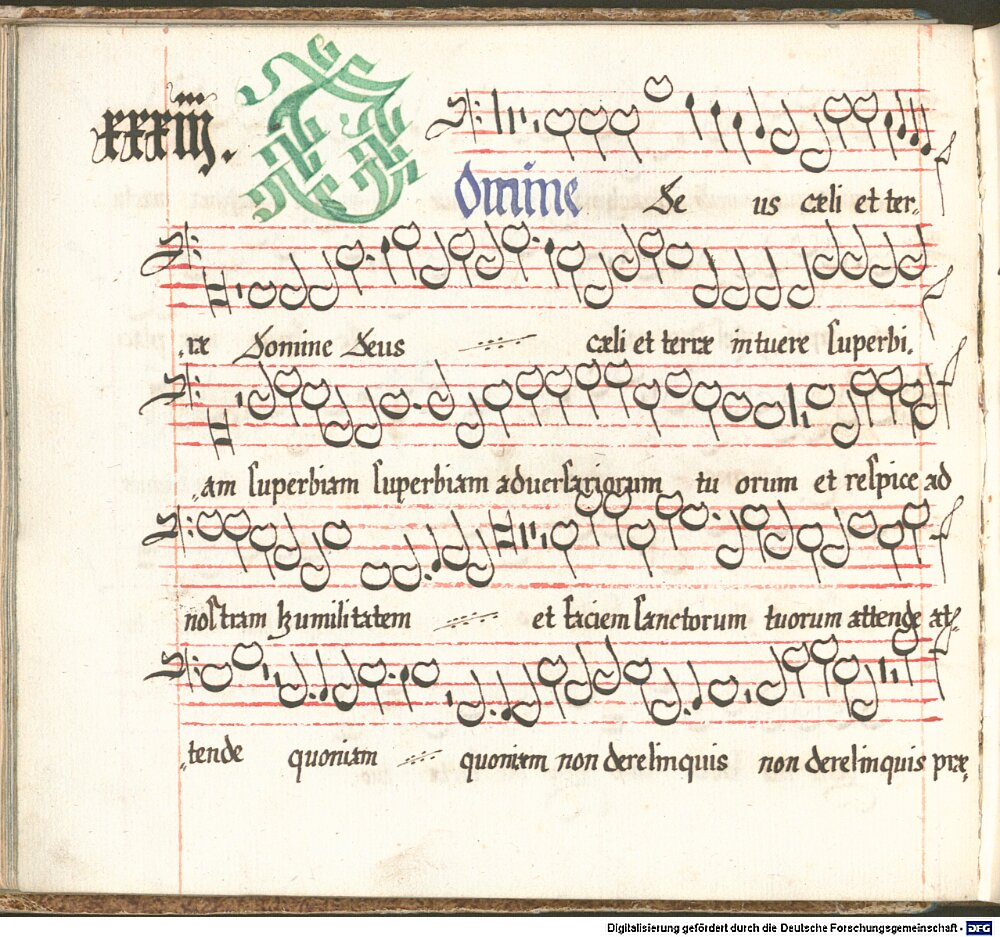 xxxiij.
Domine De us cæli et ter-
ræ Domine Deus cæli et terræ intuere superbi.
am superbiam superbiam adversariorum tu orum et respice ad
nostram humilitatem et faciem sanctorum tuorum attende at-
tende quoniam quoniam non derelinquis non derelinquis præ
Digitalisierung gefördert durch die Deutsche Forschungsgemeinschaft - DFG